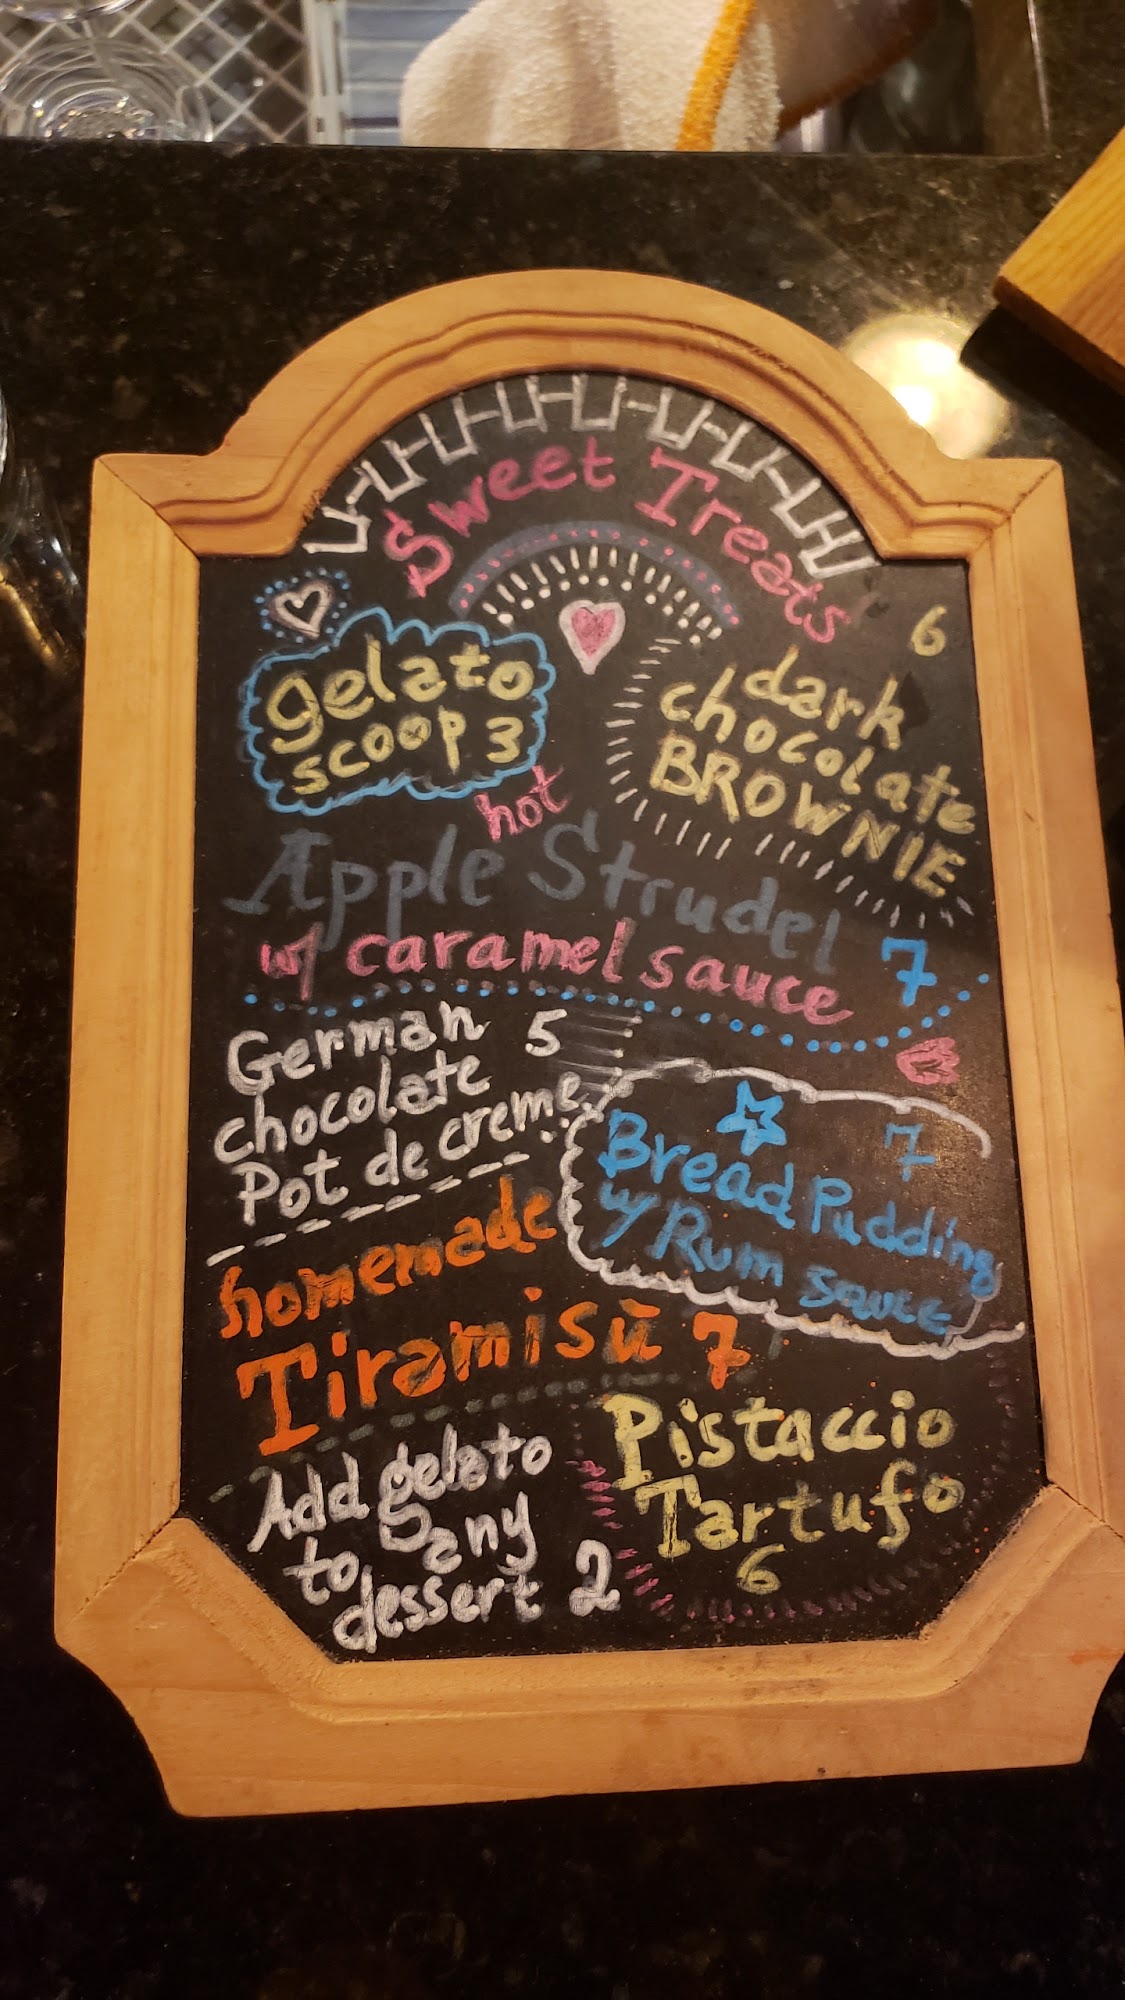 Sweet Treats
gelato
scoop 3
6
dark
chocolate
BROWNIE
hot
Apple Strudel
w/ caramel sauce 7
German 5
chocolate
Pot de creme
7
Bread Pudding
w/ Rum sauce
homemade
Tiramisū 7
Add gelato
to any
dessert 2
Pistaccio
Tartufo
6